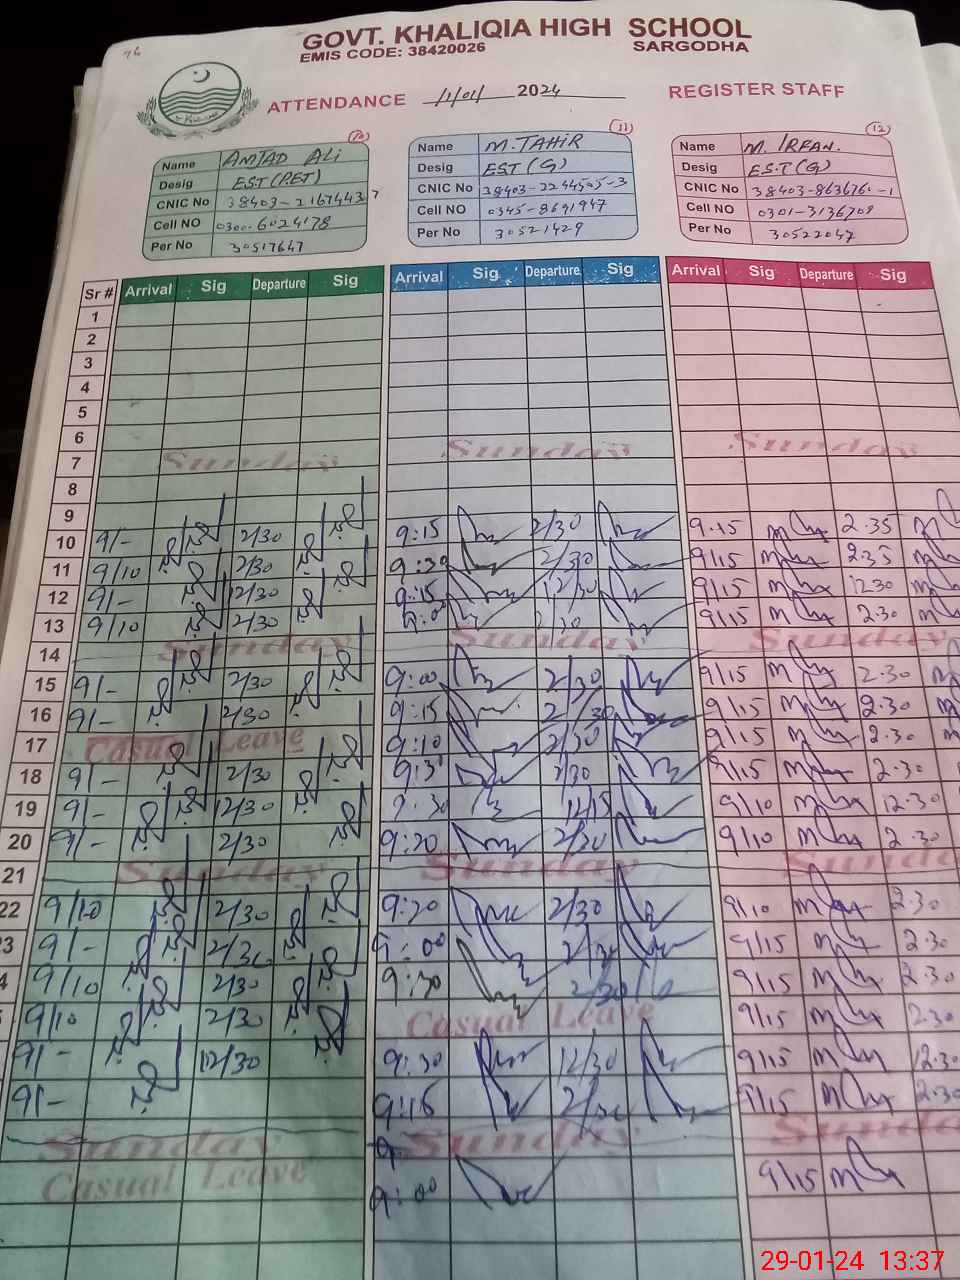 GOVT. KHALIQIA HIGH SCHOOL
EMIS CODE: 38420026 SARGODHA
ATTENDANCE 1/01/ 2024 REGISTER STAFF
(10) (11) (12)
Name AMJAD ALI Name M. TAHIR Name M. IRFAN.
Desig EST (PET) Desig EST (G) Desig EST (G)
CNIC No 38403-2167443-7 CNIC No 38403-2244505-3 CNIC No 38403-8636761-1
Cell NO 0300-6024178 Cell NO 0345-8691947 Cell NO 0301-3136708
Per No 30517647 Per No 30521429 Per No 30522047
Sr # Arrival Sig Departure Sig Arrival Sig Departure Sig Arrival Sig Departure Sig
1
2
3
4
5
6
7 Sunday Sunday Sunday
8
9
10 9/- 2/30 9:15 2/30 9.15 2.35
11 9/10 2/30 9:30 2/30 9/15 2.35
12 9/- 12/30 9:15 12/30 9/15 12.30
13 9/10 2/30 2/30 9/15 2.30
14 Sunday Sunday Sunday
15 9/- 2/30 9:00 2/30 9/15 2.30
16 9/- 2/30 9:15 2/30 9/15 2.30
17 Casual Leave 9:10 2/30 9/15 2.30
18 9/- 2/30 2/30 9/15 2.30
19 9/- 12/30 9:30 12/15 9/10 12.30
20 9/- 2/30 9:20 2/30 9/10 2.30
21 Sunday Sunday Sunday
22 9/10 2/30 9:20 2/30 9/10 2.30
23 9/- 2/30 9:00 2/30 9/15 2.30
4 9/10 2/30 9:30 2/30 9/15 2.30
9/10 2/30 Casual Leave 9/15 2.30
9/- 12/30 9:30 12/30 9/15 12.30
9/- 9:16 2/30 9/15 2.30
Sunday Sunday Sunday
Casual Leave 9:00 9/15
29-01-24 13:37